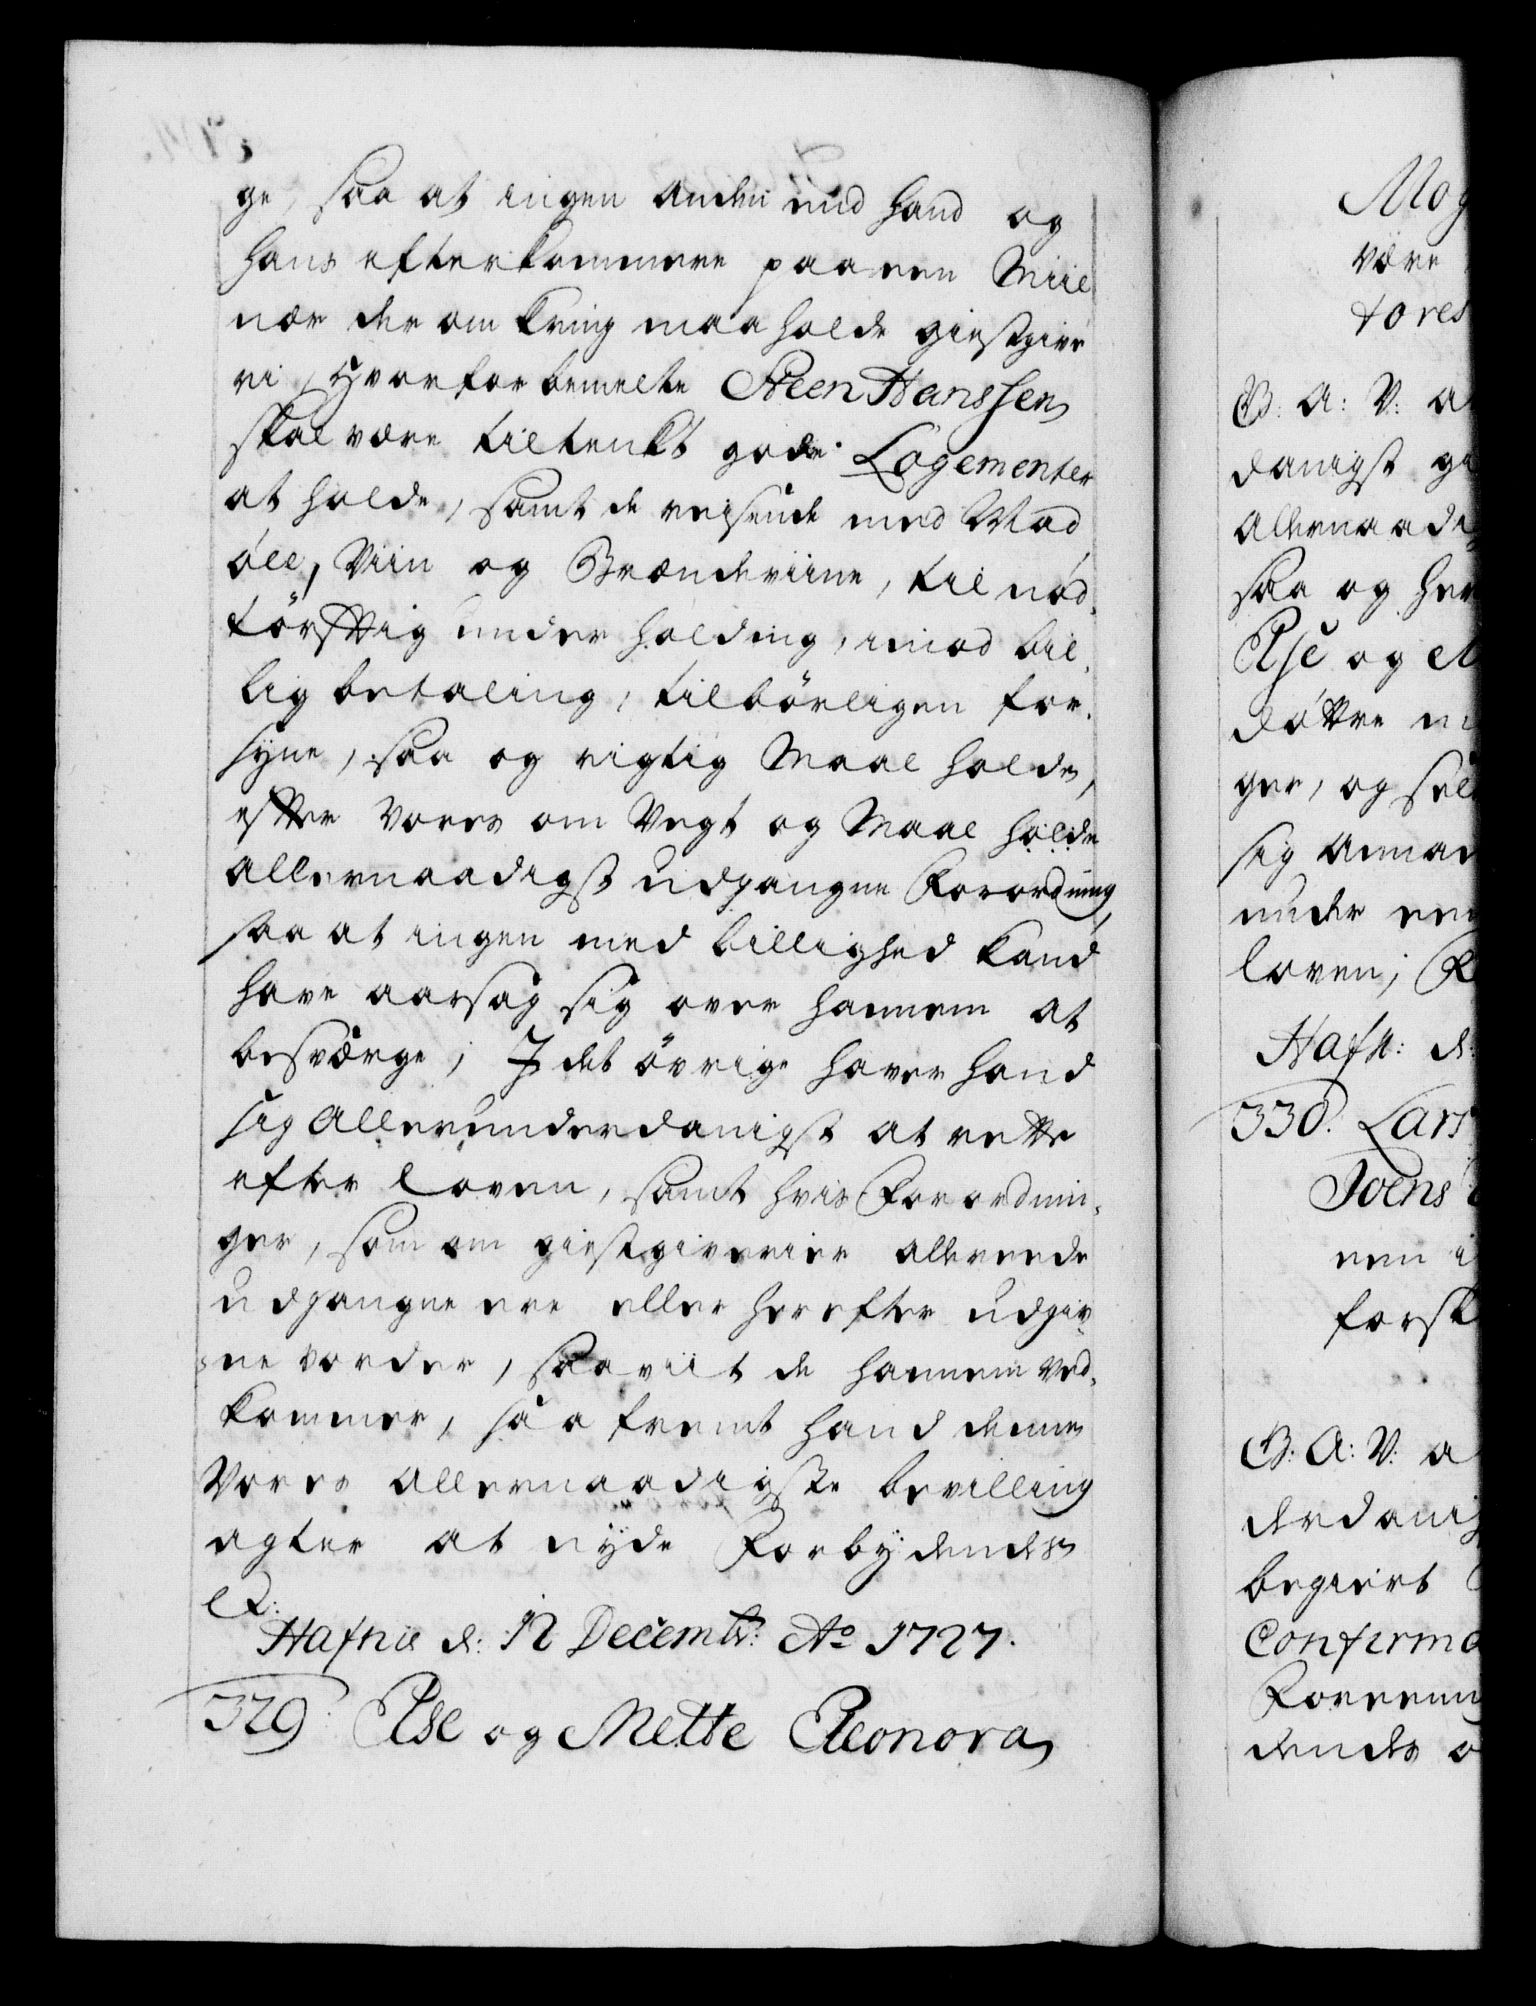 ge, saa at ingen anden end hand og
hans efterkommere paa een Miil
nær der om kring maa holde giestgive
ri, Hvorfor bemelte Steen Hanssen
skal være tiltenkt gode Logementer
at holde, samt de reisende med Mad
öll, Viin og Brændeviine, til nöd,
törfftig underholding, imod bil,
lig betaling, tilbörligen for,
syne, saa og rigtig Maal holde,
effter Vores om Vegt og Maal holde
allernaadigst udgangne Forordning,
saa at ingen med billighed kand
have aarsag sig over hannem at
besvärge; I det övrige haver hand
sig allerunderdanigst at rette
efter loven, samt hvis Forordnin,
ger, som om giestgiverier allereede
udgangne ere eller herefter udgiv
ne vorder, saaviit de hannem ved,
kommer, saa fremt hand denne
Vores allernaadigste bevilling
agter at nyde Forbydendes
etc:
Hafnie d: 12 Decembr: Ao 1727.
329. Else og Mette Eleonora
Mog
være
tores
G: A: V: a
danigst g
allernaadi
saa og her
Else og M
döttre
ger, og sel
sig annam
under een
loven; F
Hafn: d:
330. Lars
Joens
een i
forsk
G: A: V: a
derdanig
begiert
Confirma
Foreenin
dendes o